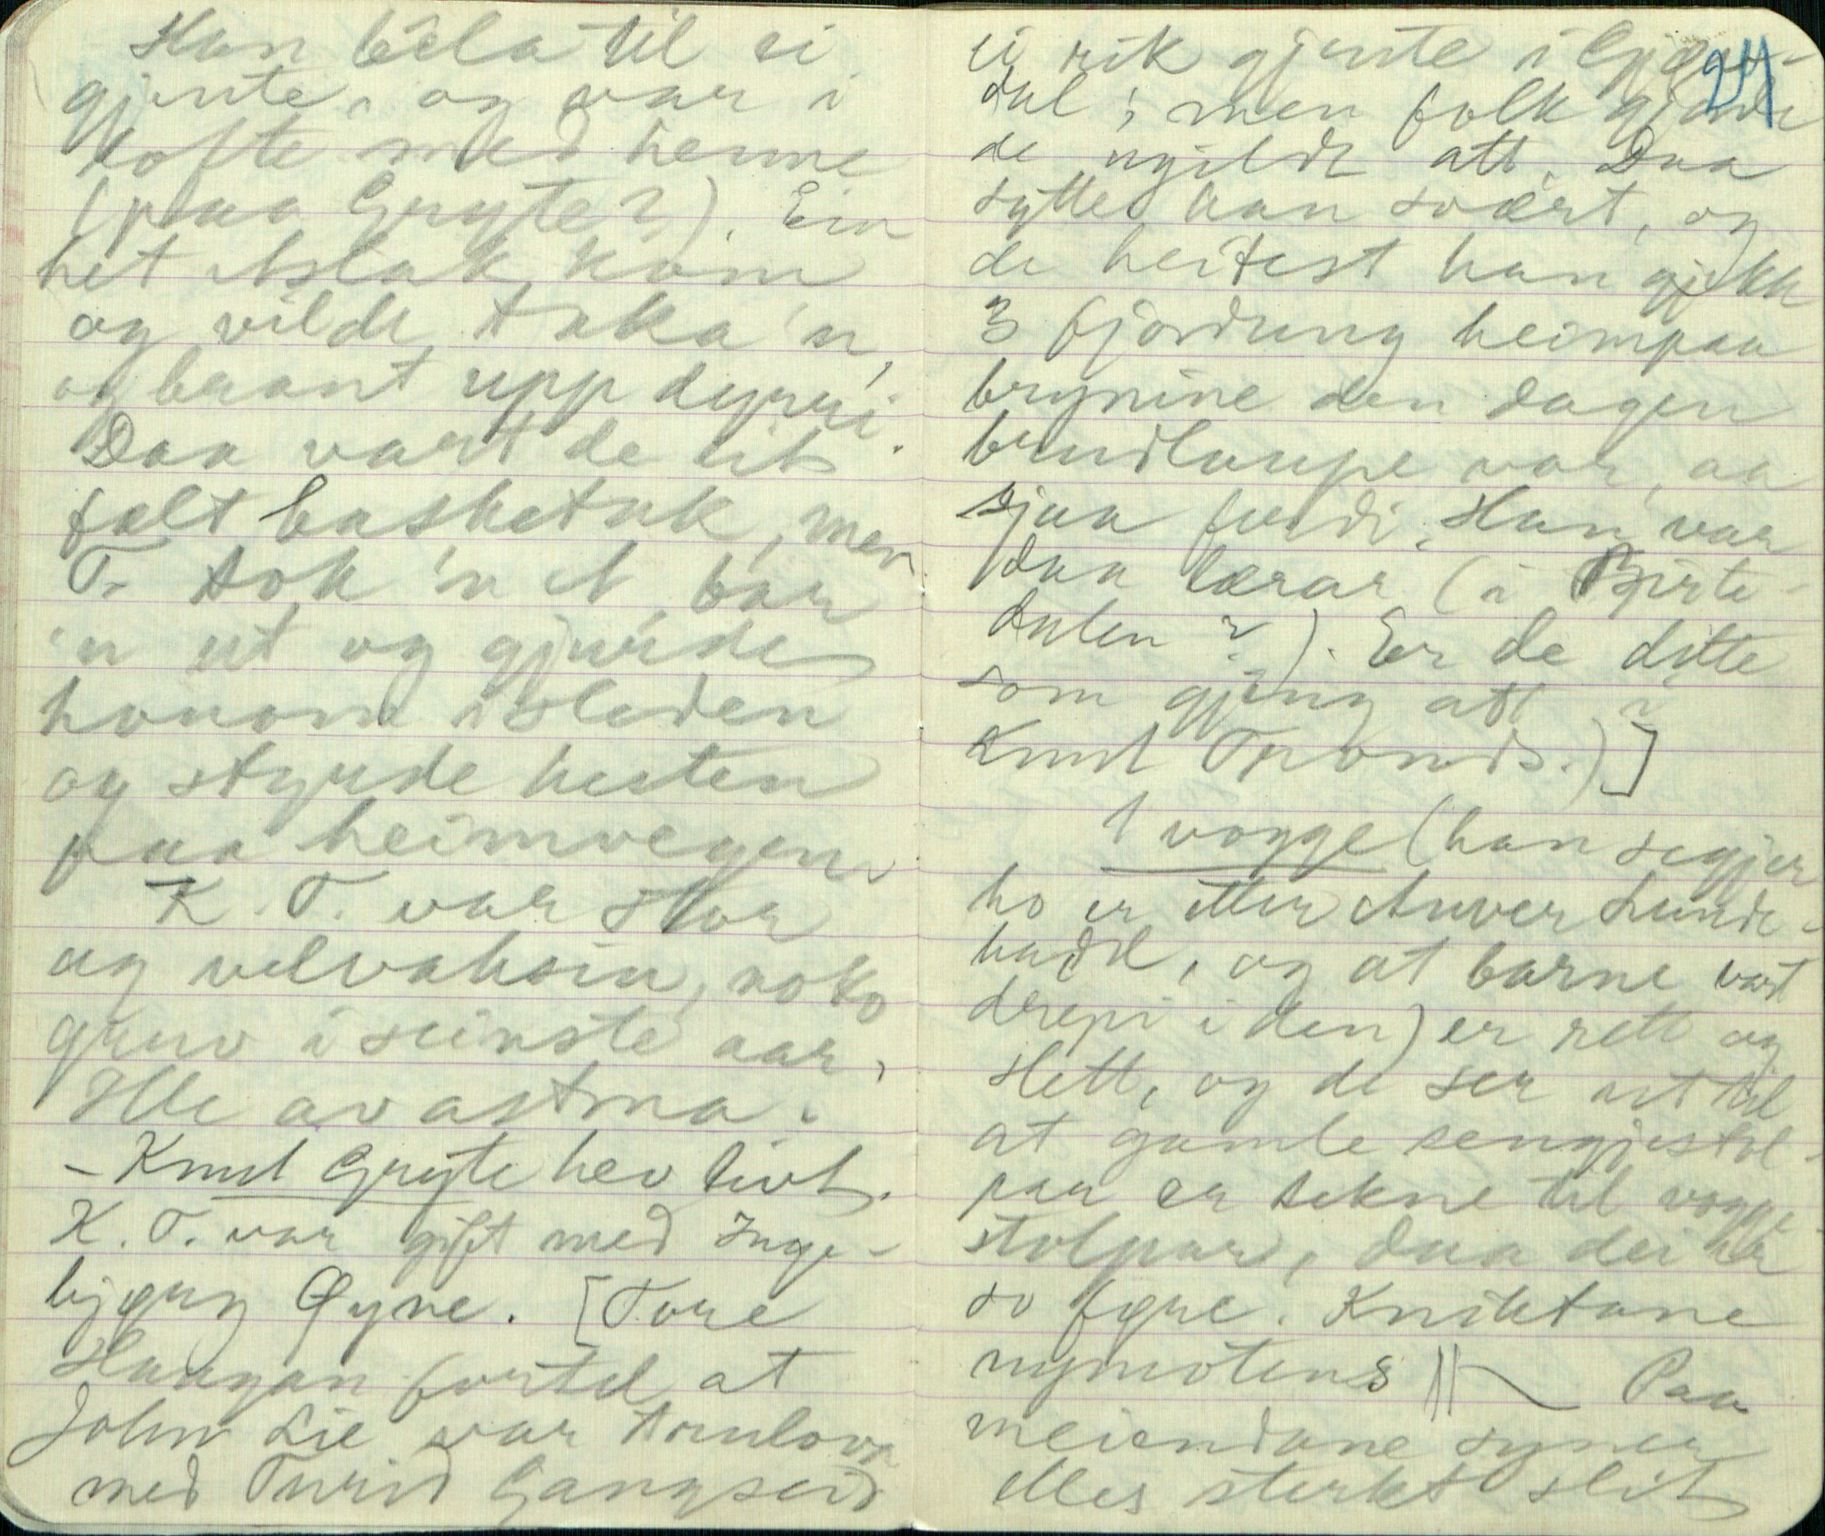 Han bela til ei
gjente, og var i
lofte med henne
(paa Gryte?). Ein
het Aslak kom
og vilde taka 'n,
og braut upp dynni.
Daa vart de eit
fælt basketak, men
T. tok 'n A, bar
'n ut og gjurde
honom i sleden
og styrde hesten
paa heimvegen.
K. T. var stor
og velvaksin, noko
gruv i seinste aar,
Ille av astma.
- Knut Gryte hev livt.
K. T. var gift med Inge-
bjørg Øyne. [Tore
Haugan fortel at
John Lie var trulova
med Turid Gangseid
24
ei rik gjente i
dal; men folk gjorde
de ugildt att. Daa
sytte han svært, og
de heitest han gjekk
3 fjordung heimpaa
brynine den dagen
brudlaupe var, aa
sjaa ferdi. Han var
daa lærar (i Birte-
dalen?). Er de ditte
som gjeng att i
Knut Tronds.)]
1 vogge (han segjer
ho er etter Anver Lunde-
, og at barne vart
drepi i den) er rett og
slett, og de ser ut til
at gamle sengjestol-
par er tekne til vogge-
stolpar, daa dei er
so føre. Kniktane
nymotens Paa
meiendane syner
elles sterkt slit